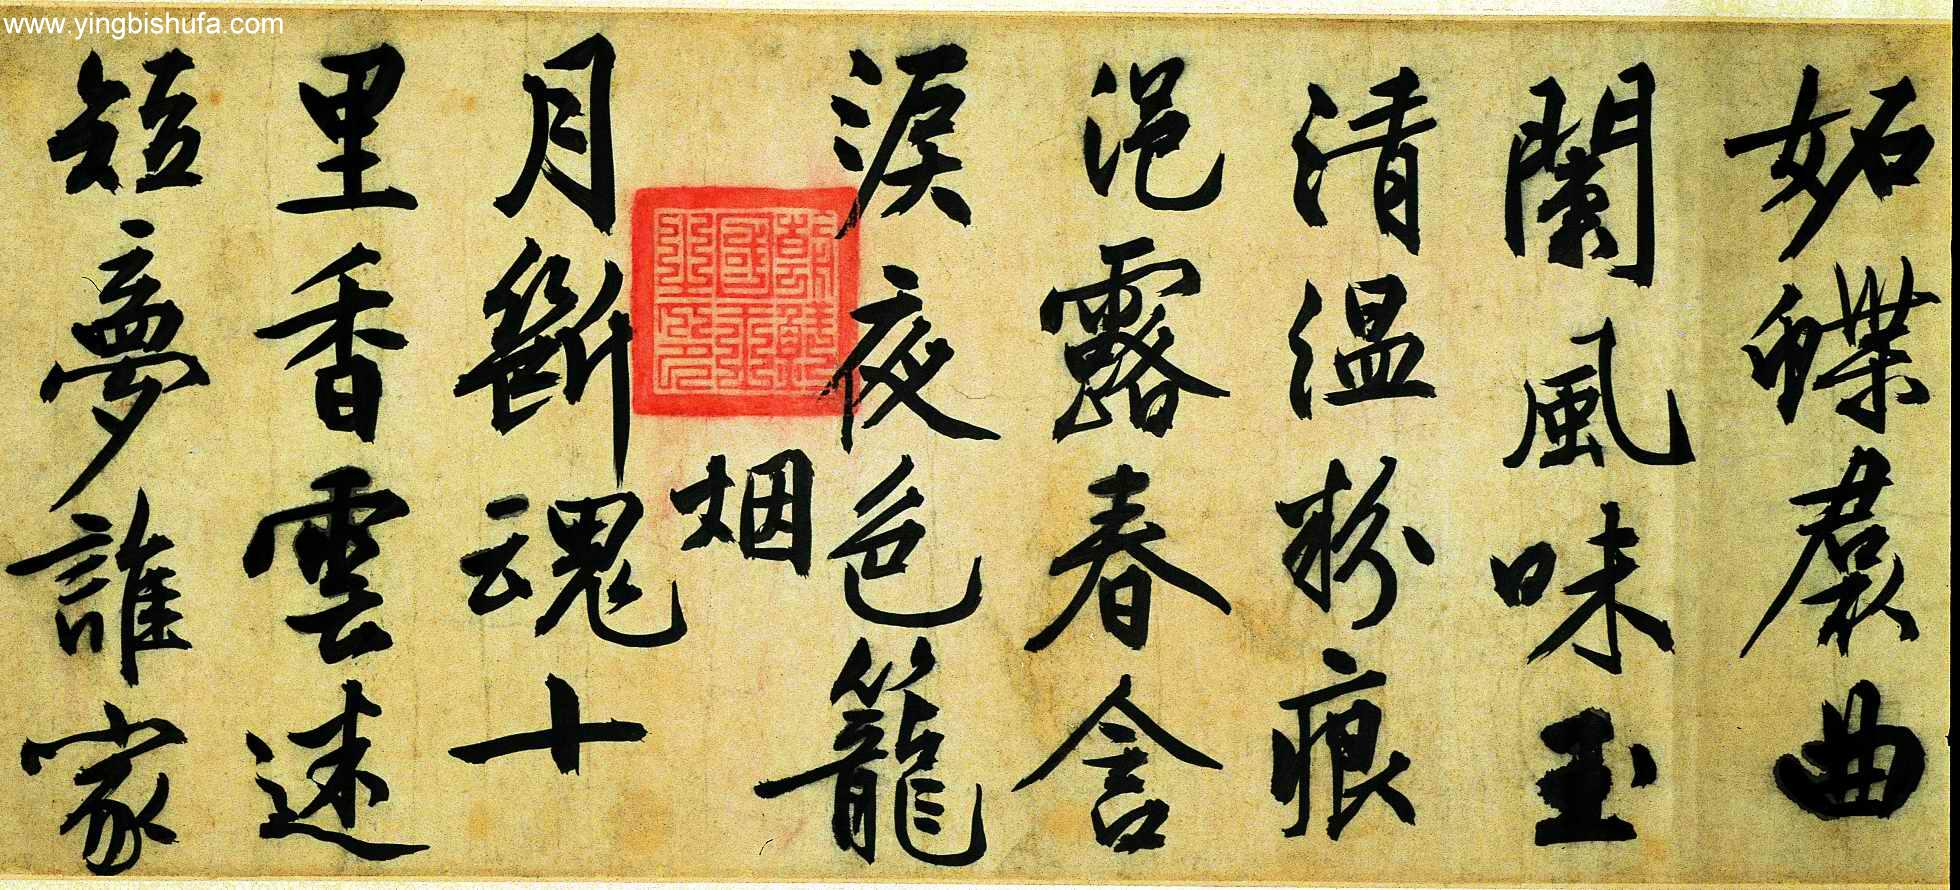 www.yingbishufa.com
妬蝶裠曲
闌風味玉
清温粉痕
浥露春含
淚夜色籠
烟
月斷魂十
里香雲迷
短夢誰家